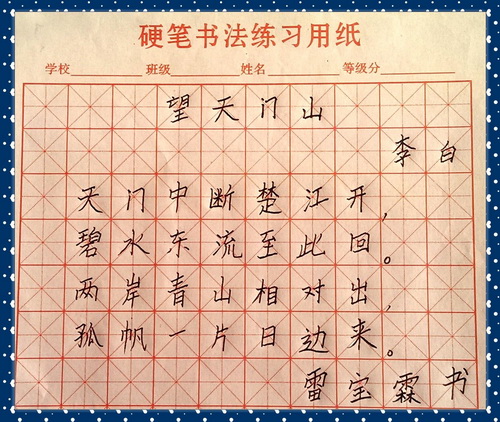 硬笔书法练习用纸
学校 班级 姓名 等级分
望天门山
李白
天门中断楚江开，
碧水东流至此回。
两岸青山相对出，
孤帆一片日边来。
雷宝霖书